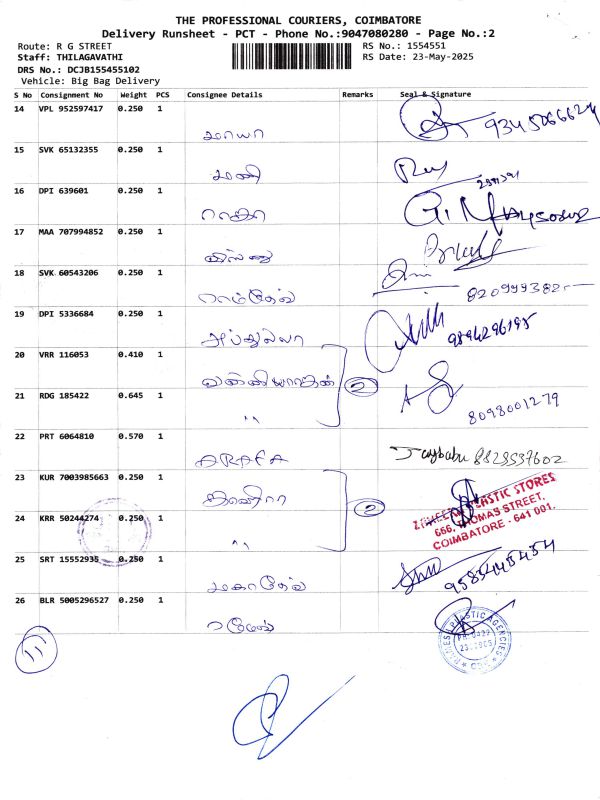 THE PROFESSIONAL COURIERS, COIMBATORE
Delivery Runsheet - PCT - Phone No.:9047080280 - Page No.:2
Route: R G STREET
RS No.: 1554551
Staff: THILAGAVATHI
RS Date: 23-May-2025
DRS No.: DCJB155455102
Vehicle: Big Bag Delivery
S No Consignment No Weight PCS Consignee Details Remarks Seal & Signature
14 VPL 952597417 0.250 1
மாயா
15 SVK 65132355 0.250 1
மணி
16 DPI 639601 0.250 1
ராஜா
17 MAA 707994852 0.250 1
18 SVK 60543206 0.250 1
ராம்தேவ்
19 DPI 5336684 0.250 1
அப்துல்லா 9894296195
20 VRR 116053 0.410 1
2
21 RDG 185422 0.645 1
" 8098001279
22 PRT 6064810 0.570 1
ARAFA
23 KUR 7003985663 0.250 1
2
PLASTIC STORES
666, THOMAS STREET,
COIMBATORE - 641 001.
24 KRR 50244274 0.250 1
"
25 SRT 15552935 0.250 1
மகாதேவ்
26 BLR 5005296527 0.250 1
ரமேஷ்
PLASTIC AGENCIES
11